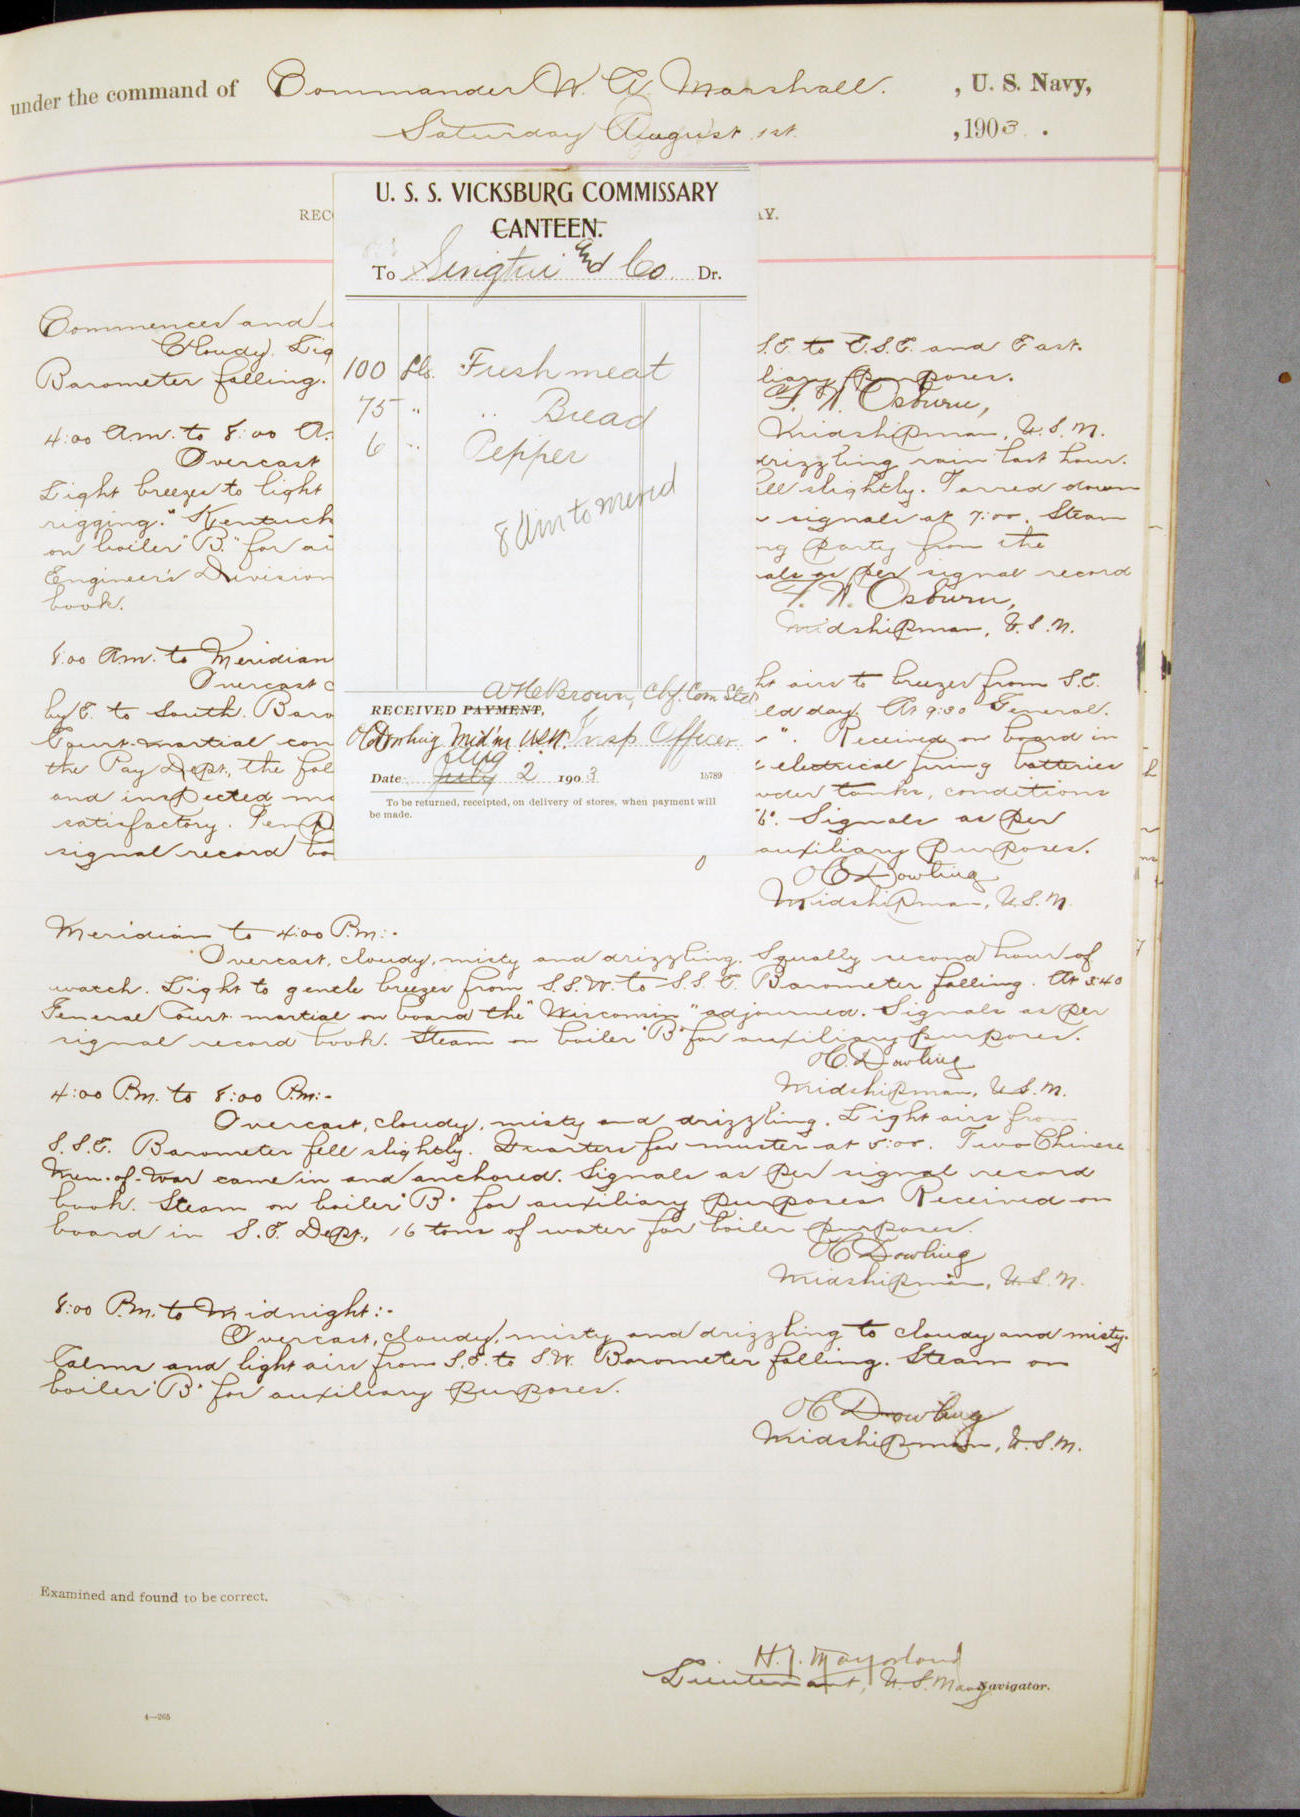 under the command of Commander W. A. Marshall. , U. S. Navy,
Saturday August 1st. , 1903 .
REC
AY.
U. S. S. VICKSBURG COMMISSARY
CANTEEN.
To Singtui and Co. Dr.
100 Lbs. Fresh meat
75 " " Bread
6 " Pepper
8 Am to merid
A H Brown, Chf. Com Std
RECEIVED PAYMENT,
O C Dowling Mid'n. U.S.N. Insp. Officer.
Aug
Date July 2 1903 15789
To be returned, receipted, on delivery of stores, when payment will
be made.
Commences and
Cloudy. Lig S.E. to E.S.E. and East.
Barometer falling. liary purposes.
F. N. Osburn,
Midshipman, U.S.N.
4:00 Am. to 8:00 A.
Overcast drizzling rain last hour.
Light breezes to light ell slightly. Tarred down
rigging. "Kentuck signals at 7:00. Steam
on boiler "B." for au ng party from the
Engineer's Division als as per signal record
book.
F. N. Osburn,
Midshipman, U.S.N.
8:00 Am. to Meridian
Overcast c ht airs to breezes from S.E.
by E. to South. Baro eld day. At 9:30 General.
Court-martial con ". Received on board in
the Pay Dept., the fol electrical firing batteries
and inspected ma wder tanks, conditions
satisfactory. Temp "6". Signals as per
signal record bo auxiliary purposes.
O C Dowling
Midshipman, U.S.N.
Meridian to 4:00 P.m:-
Overcast, cloudy, misty and drizzling. Squally second hour of
watch. Light to gentle breezes from S.S.W. to S.S.E. Barometer falling. At 3:40
General Court-martial on board the "Wisconsin" adjourned. Signals as per
signal record book. Steam on boiler "B" for auxiliary purposes.
O C. Dowling
Midshipman, U.S.N.
4:00 P.m. to 8:00 P.m:-
Overcast, cloudy, misty and drizzling. Light airs from
S.S.E. Barometer fell slightly. Quarters for muster at 5:00. Two Chinese
Men-of-War came in and anchored. Signals as per signal record
book. Steam on boiler "B" for auxiliary purposes Received on
board in S.E. Dept., 16 tons of water for boiler purposes.
O C Dowling
Midshipman, U.S.N.
8:00 P.m. to Midnight:-
Overcast, cloudy, misty and drizzling to cloudy and misty.
Calms and light airs from S.E. to S.W. Barometer falling. Steam on
boiler "B" for auxiliary purposes.
O C Dowling
Midshipman, U.S.N.
Examined and found to be correct.
Lieutenant, U. S. Navy Navigator.
4—265